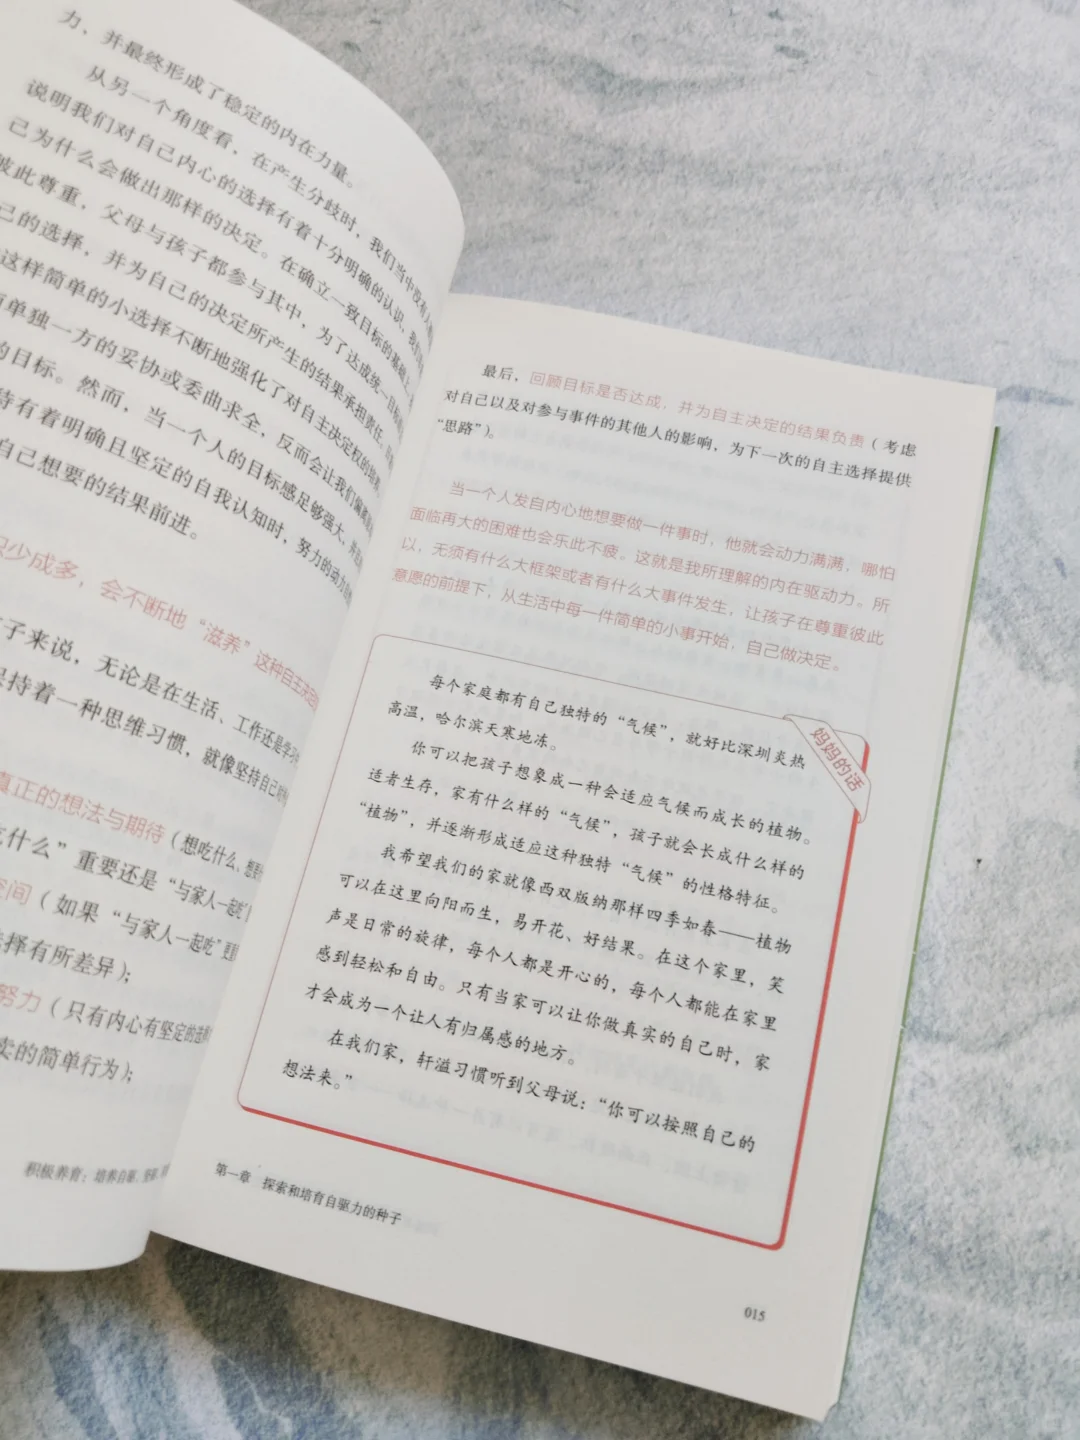 力，并最终形成了稳定的内在力量。
从另一个角度看，在产生分歧时，我们当中没有人
说明我们对自己内心的选择有着十分明确的认识，我们
己为什么会做出那样的决定。在确立一致目标的基础上，
彼此尊重，父母与孩子都参与其中，为了达成统一目标
己的选择，并为自己的决定所产生的结果承担责任。
这样简单的小选择不断地强化了对自主决定权的培养，
单独一方的妥协或委曲求全，反而会让我们偏离
的目标。然而，当一个人的目标感足够强大，并
持有着明确且坚定的自我认知时，努力的动力
自己想要的结果前进。
积少成多，会不断地“滋养”这种自主决定
孩子来说，无论是在生活、工作还是学习
保持着一种思维习惯，就像坚持自己
真正的想法与期待（想吃什么、想
吃什么”重要还是“与家人一起吃”
空间（如果“与家人一起吃”更
选择有所差异）；
努力（只有内心有坚定的选择
卖的简单行为）；
积极养育：培养自驱、
最后，回顾目标是否达成，并为自主决定的结果负责（考虑
对自己以及对参与事件的其他人的影响，为下一次的自主选择提供
“思路”）。
当一个人发自内心地想要做一件事时，他就会动力满满，哪怕
面临再大的困难也会乐此不疲。这就是我所理解的内在驱动力。所
以，无须有什么大框架或者有什么大事件发生，让孩子在尊重彼此
意愿的前提下，从生活中每一件简单的小事开始，自己做决定。
妈妈的话
每个家庭都有自己独特的“气候”，就好比深圳炎热
高温，哈尔滨天寒地冻。
你可以把孩子想象成一种会适应气候而成长的植物。
适者生存，家有什么样的“气候”，孩子就会长成什么样的
“植物”，并逐渐形成适应这种独特“气候”的性格特征。
我希望我们的家就像西双版纳那样四季如春——植物
可以在这里向阳而生，易开花、好结果。在这个家里，笑
声是日常的旋律，每个人都是开心的，每个人都能在家里
感到轻松和自由。只有当家可以让你做真实的自己时，家
才会成为一个让人有归属感的地方。
在我们家，轩溢习惯听到父母说：“你可以按照自己的
想法来。”
第一章 探索和培育自驱力的种子
015